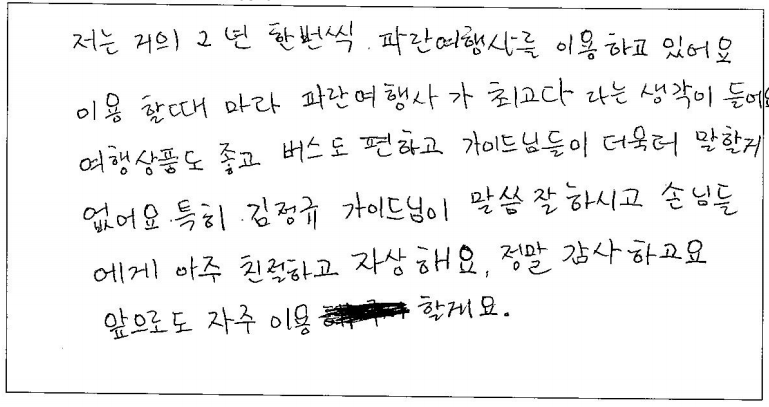 저는 거의 2년 한번씩. 파란여행사를 이용하고 있어요
이용 할때 마다 파란여행사가 최고다 라는 생각이 들어요
여행상품도 좋고 버스도 편하고 가이드님들이 더욱더 말할게
없어요. 특히. 김정규 가이드님이 말씀 잘하시고 손님들
에게 아주 친절하고 자상해요, 정말 감사하고요
앞으로도 자주 이용 할게요.